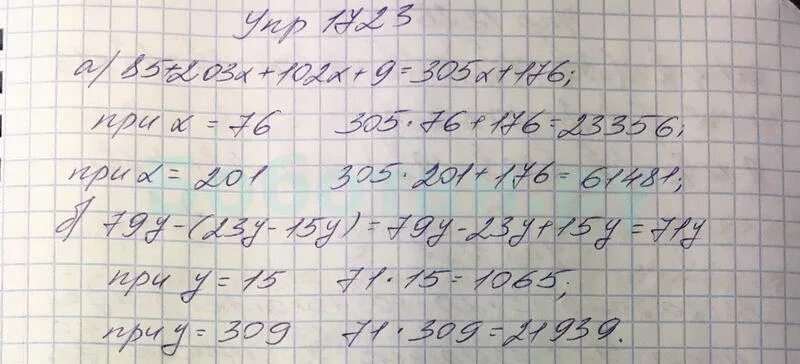 Упр 1723
а) 85+203x+102x+9=305x+176;
при x = 76 305·76+176=23356;
при x = 201 305·201+176=61481;
б) 79y-(23y-15y)=79y-23y+15y=71y
при y = 15 71·15=1065;
при y = 309 71·309=21939.